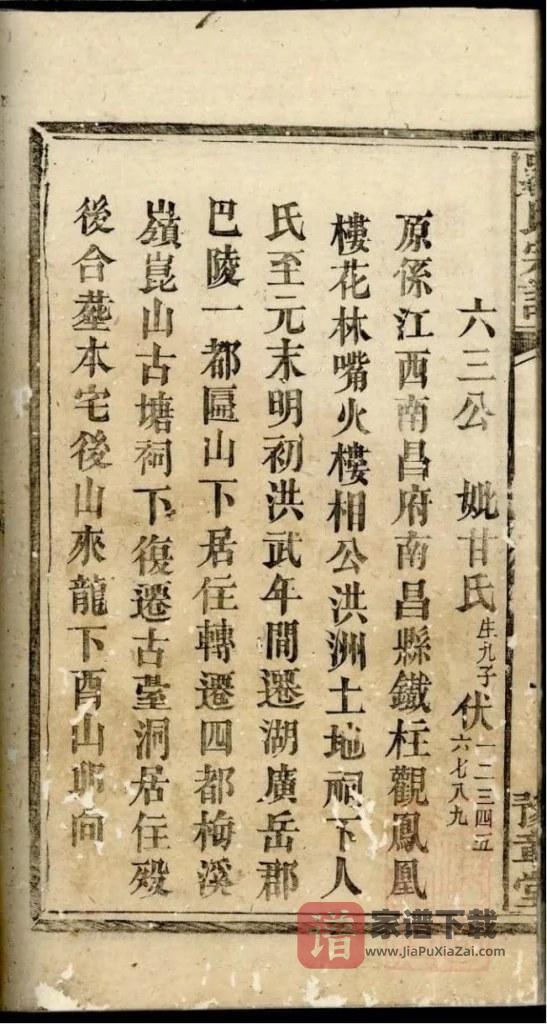 羅氏宗譜
豫章堂
六三公 妣甘氏 生九子 伏 一二三四五六七八九
原係江西南昌府南昌縣鐵柱觀鳳凰
樓花林嘴火樓相公洪洲土地祠下人
氏至元末明初洪武年間遷湖廣岳郡
巴陵一都匾山下居住轉遷四都梅溪
嶺崑山古塘祠下復遷古臺洞居住殁
後合塟本宅後山來龍下酉山卯向
谱 家谱下载
www.JiaPuXiaZai.com